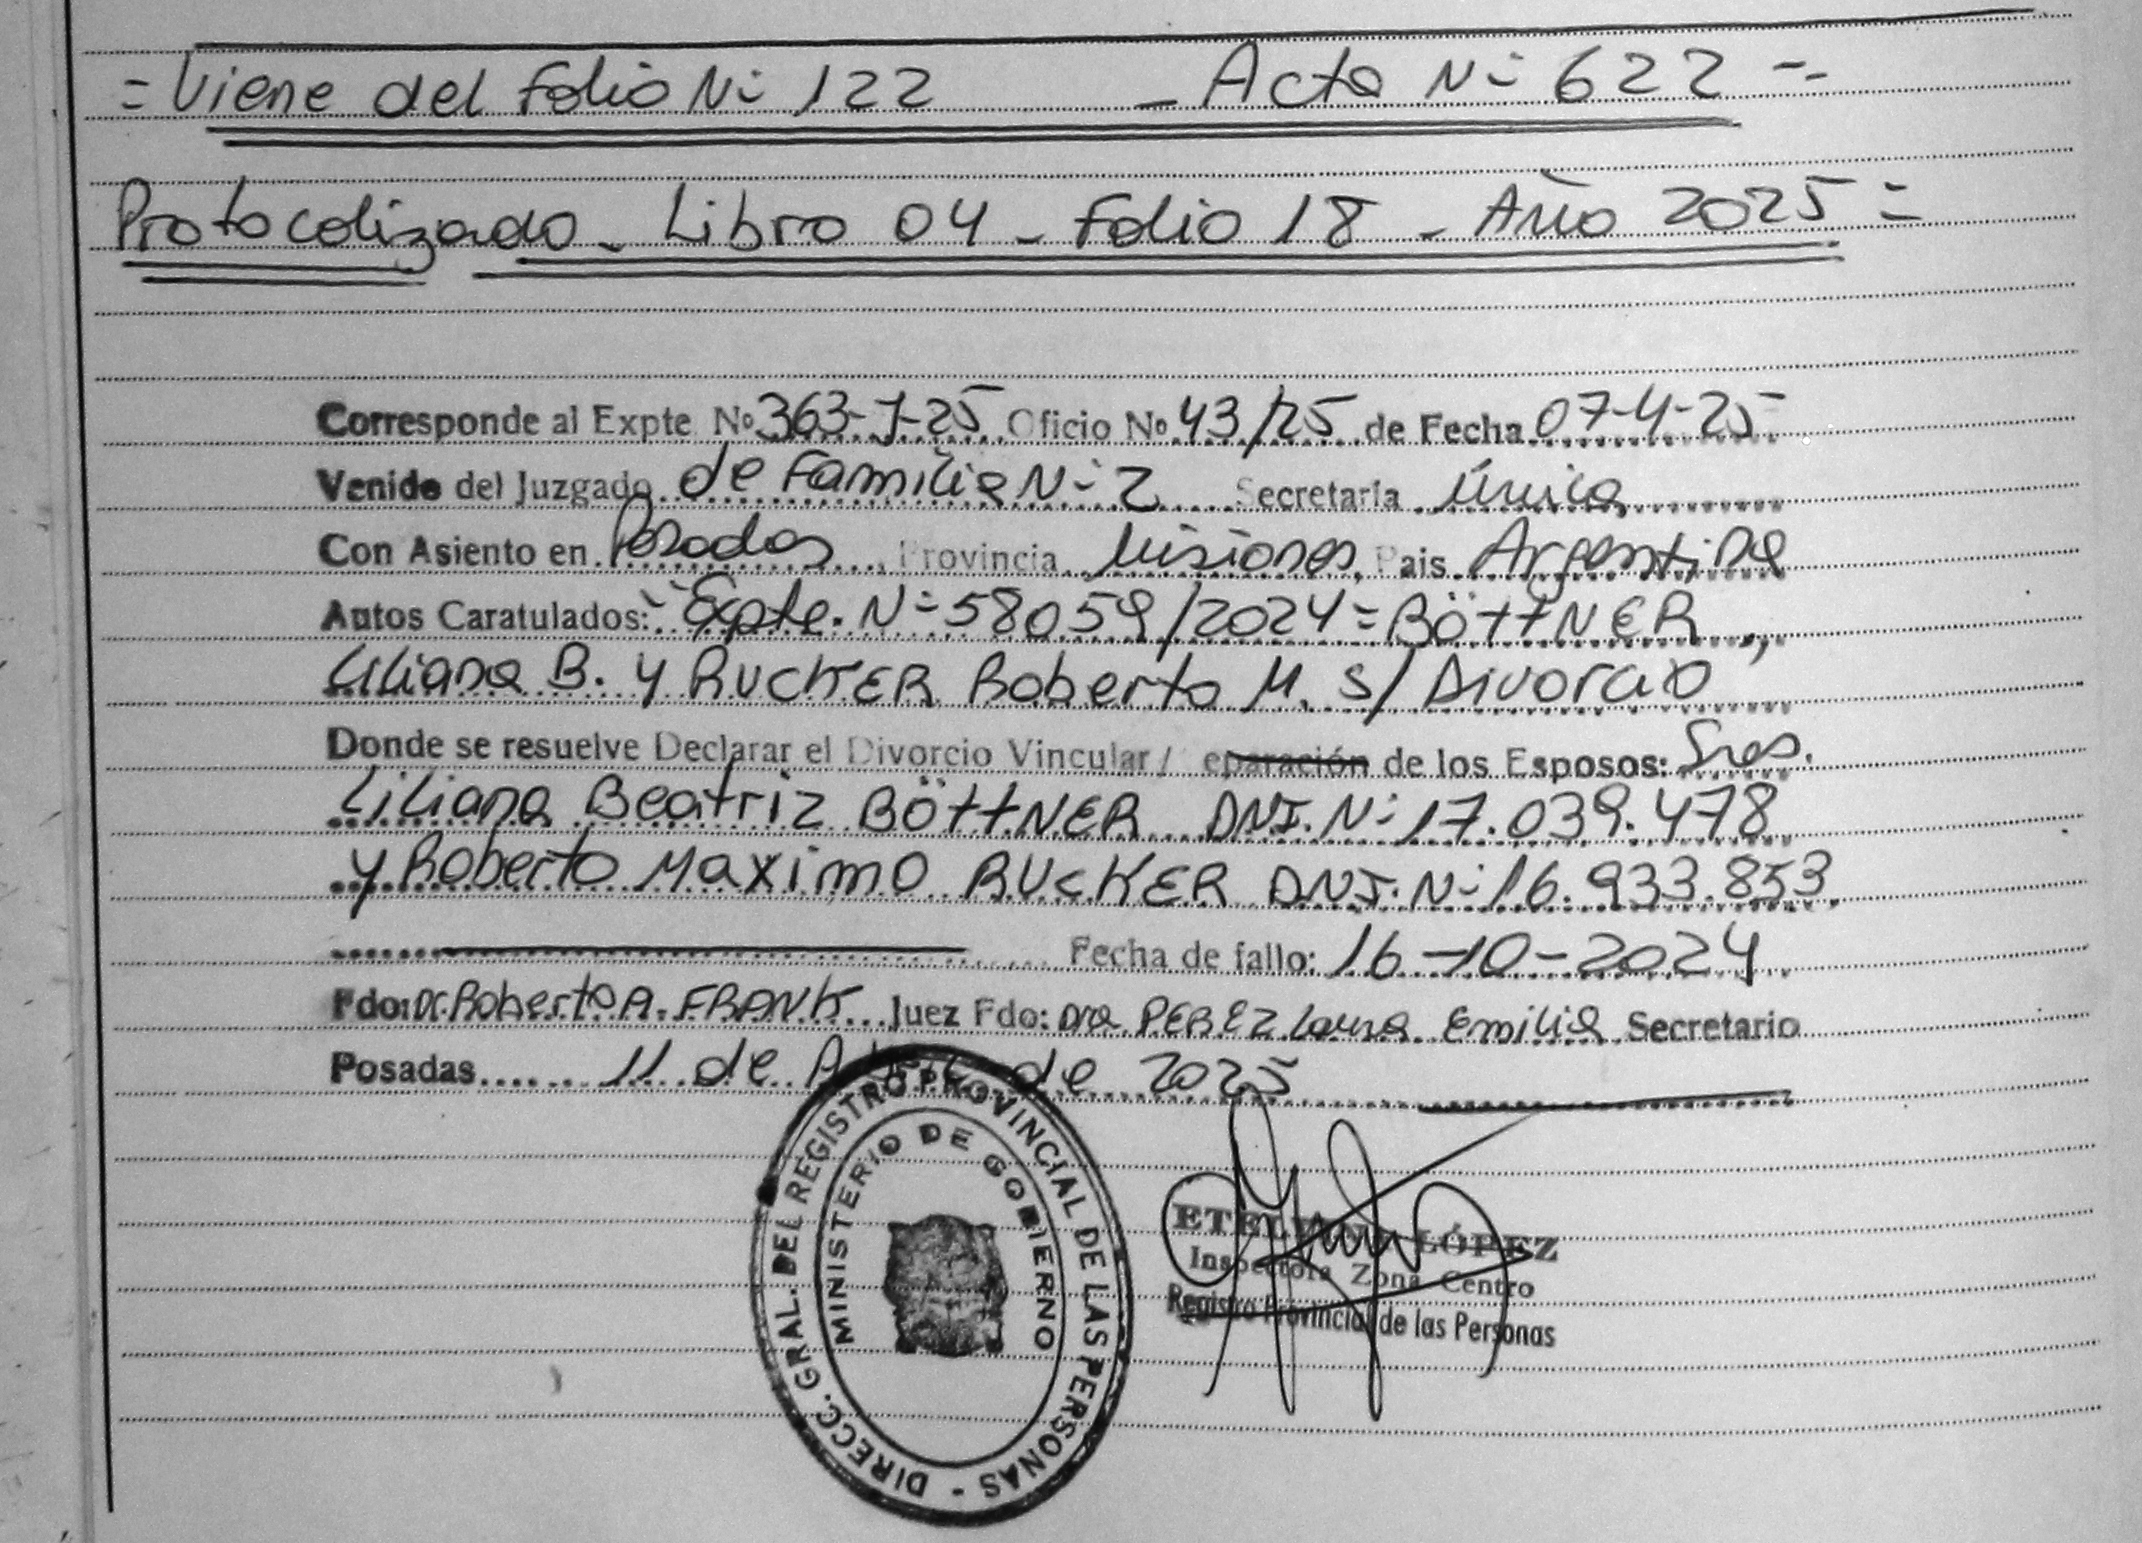 = Viene del Folio Nº 122 - Acta Nº 622 =
Protocolizado - Libro 04 - Folio 18 - Año 2025 =
Corresponde al Expte Nº 363-J-25 Oficio Nº 43/25 de Fecha 07-4-25
Venido del Juzgado de Familia Nº 2 Secretaría Única
Con Asiento en Posadas, Provincia Misiones, Pais Argentina
Autos Caratulados: "Expte. Nº 58059/2024 = BöttNER,
Liliana B. y RUCKER Roberto M. s/ Divorcio
Donde se resuelve Declarar el Divorcio Vincular / eparación de los Esposos: Sres.
Liliana Beatriz BöttNER DNI. Nº 17.039.478
y Roberto Maximo RUCKER DNI. Nº 16.933.853
Fecha de fallo: 16-10-2024
Fdo: Dr. Roberto A. FRANK Juez Fdo: Dra PEREZ Laura Emilia Secretario
Posadas 11 de Abril de 2025
DIRECC. GRAL. DEL REGISTRO PROVINCIAL DE LAS PERSONAS -
MINISTERIO DE GOBIERNO
LÓPEZ
Inspectora Zona Centro
Registro Provincial de las Personas